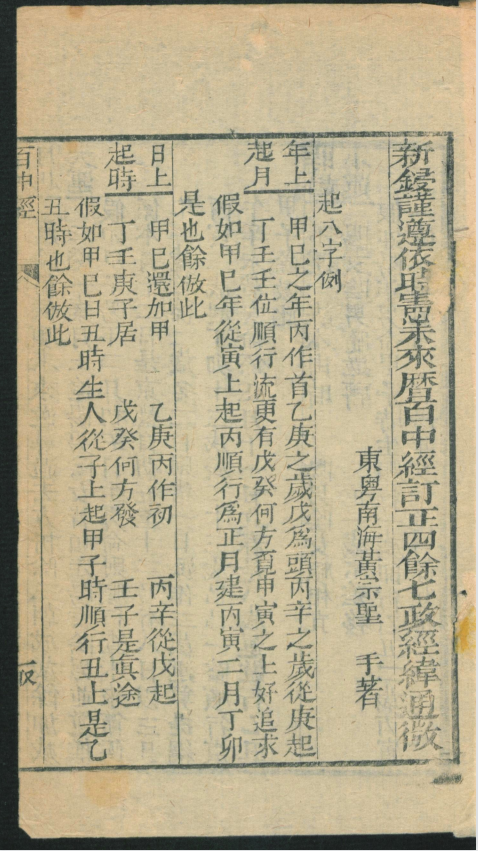 新鋟謹遵依時憲未來曆百中經訂正四餘七政經緯通徵
東粵南海黃宗聖　手著
起八字例
年上起月
甲巳之年丙作首乙庚之歲戊爲頭丙辛之歲從庚起
丁壬壬位順行流更有戊癸何方覔甲寅之上好追求
假如甲巳年從寅上起丙順行爲正月建丙寅二月丁卯
是也餘倣此
日上起時
甲巳還加甲　乙庚丙作初　丙辛從戊起
丁壬庚子居　戊癸何方發　壬子是眞途
假如甲巳日丑時生人從子上起甲子時順行丑上是乙
丑時也餘倣此
百中經